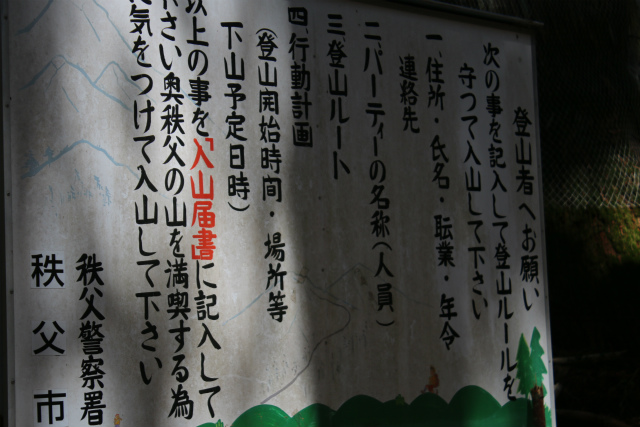 登山者へお願い
次の事を記入して登山ルールを
守つて入山して下さい
一、住所・氏名・職業・年令
連絡先
二、パーティーの名称(人員)
三、登山ルート
四、行動計画
(登山開始時間・場所等
下山予定日時)
以上の事を「入山届書」に記入して
下さい奥秩父の山を満喫する為
気をつけて入山して下さい
秩父警察署
秩父市